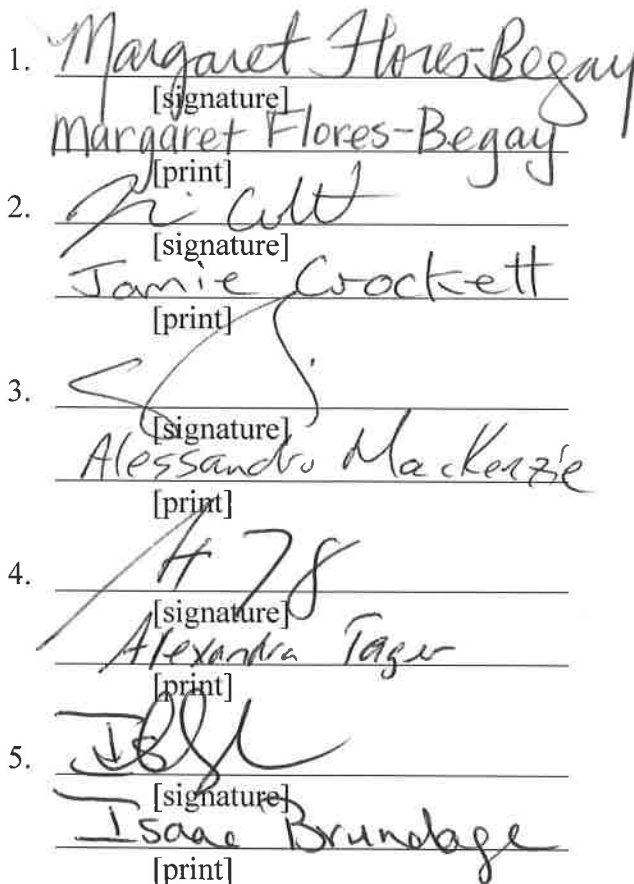 1. Margaret Flores-Begay
[signature]
Margaret Flores-Begay
[print]
2.
[signature]
Jamie Crockett
[print]
3.
[signature]
Alessandro MacKenzie
[print]
4.
[signature]
Alexandra Tager
[print]
5.
[signature]
Isaac Brundage
[print]